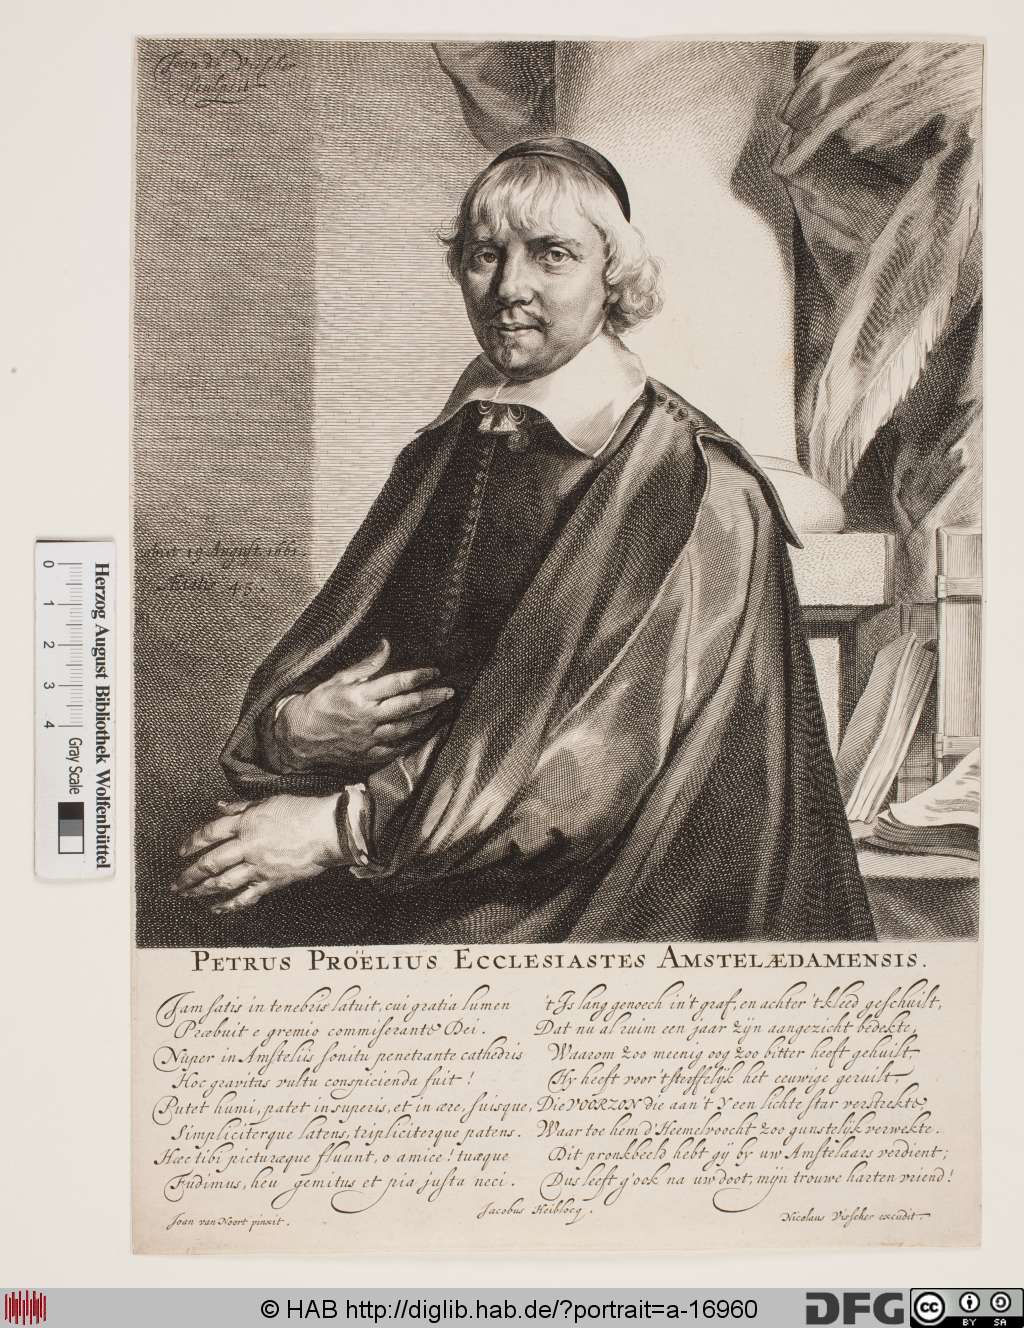 Joan de Visscher
sculpsit
obiit 19 August. 1661.
Ætatis 45.
PETRUS PROËLIUS ECCLESIASTES AMSTELÆDAMENSIS.
Jam satis in tenebris latuit, cui gratia lumen
Præbuit e gremio commiserante Dei.
Nuper in Amsteliis sonitu penetrante cathedris
Hoc gravitas vultu conspicienda fuit!
Putet humi, patet in superis, et in ære, suisque,
Simpliciterque latens, tripliciterque patens.
Hæc tibi picturæque fluunt, o amice! tuæque
Fudimus, heu gemitus et pia justa neci.
't Is lang genoech in 't graf, en achter 't kleed geschuilt,
Dat nu al ruim een jaar zijn aangezicht bedekte,
Waarom zoo meenig oog zoo bitter heeft gehuilt,
Hy heeft voor 't stoffelijk het eeuwige geruilt,
Die VOORZON die aan 't Y een lichte star verstrekte,
Waar toe hem d'Heemelvoocht zoo gunstelijk verwekte.
Dit pronkbeeld hebt gij by uw Amstelaars verdient;
Dus leeft g'ook na uw doot, mijn trouwe harten vriend!
Jacobus Heiblocq.
Joan van Noort pinxit.
Nicolaus Visscher excudit.
0 1 2 3 4
Herzog August Bibliothek Wolfenbüttel
Gray Scale
© HAB http://diglib.hab.de/?portrait=a-16960
DFG
cc
BY SA